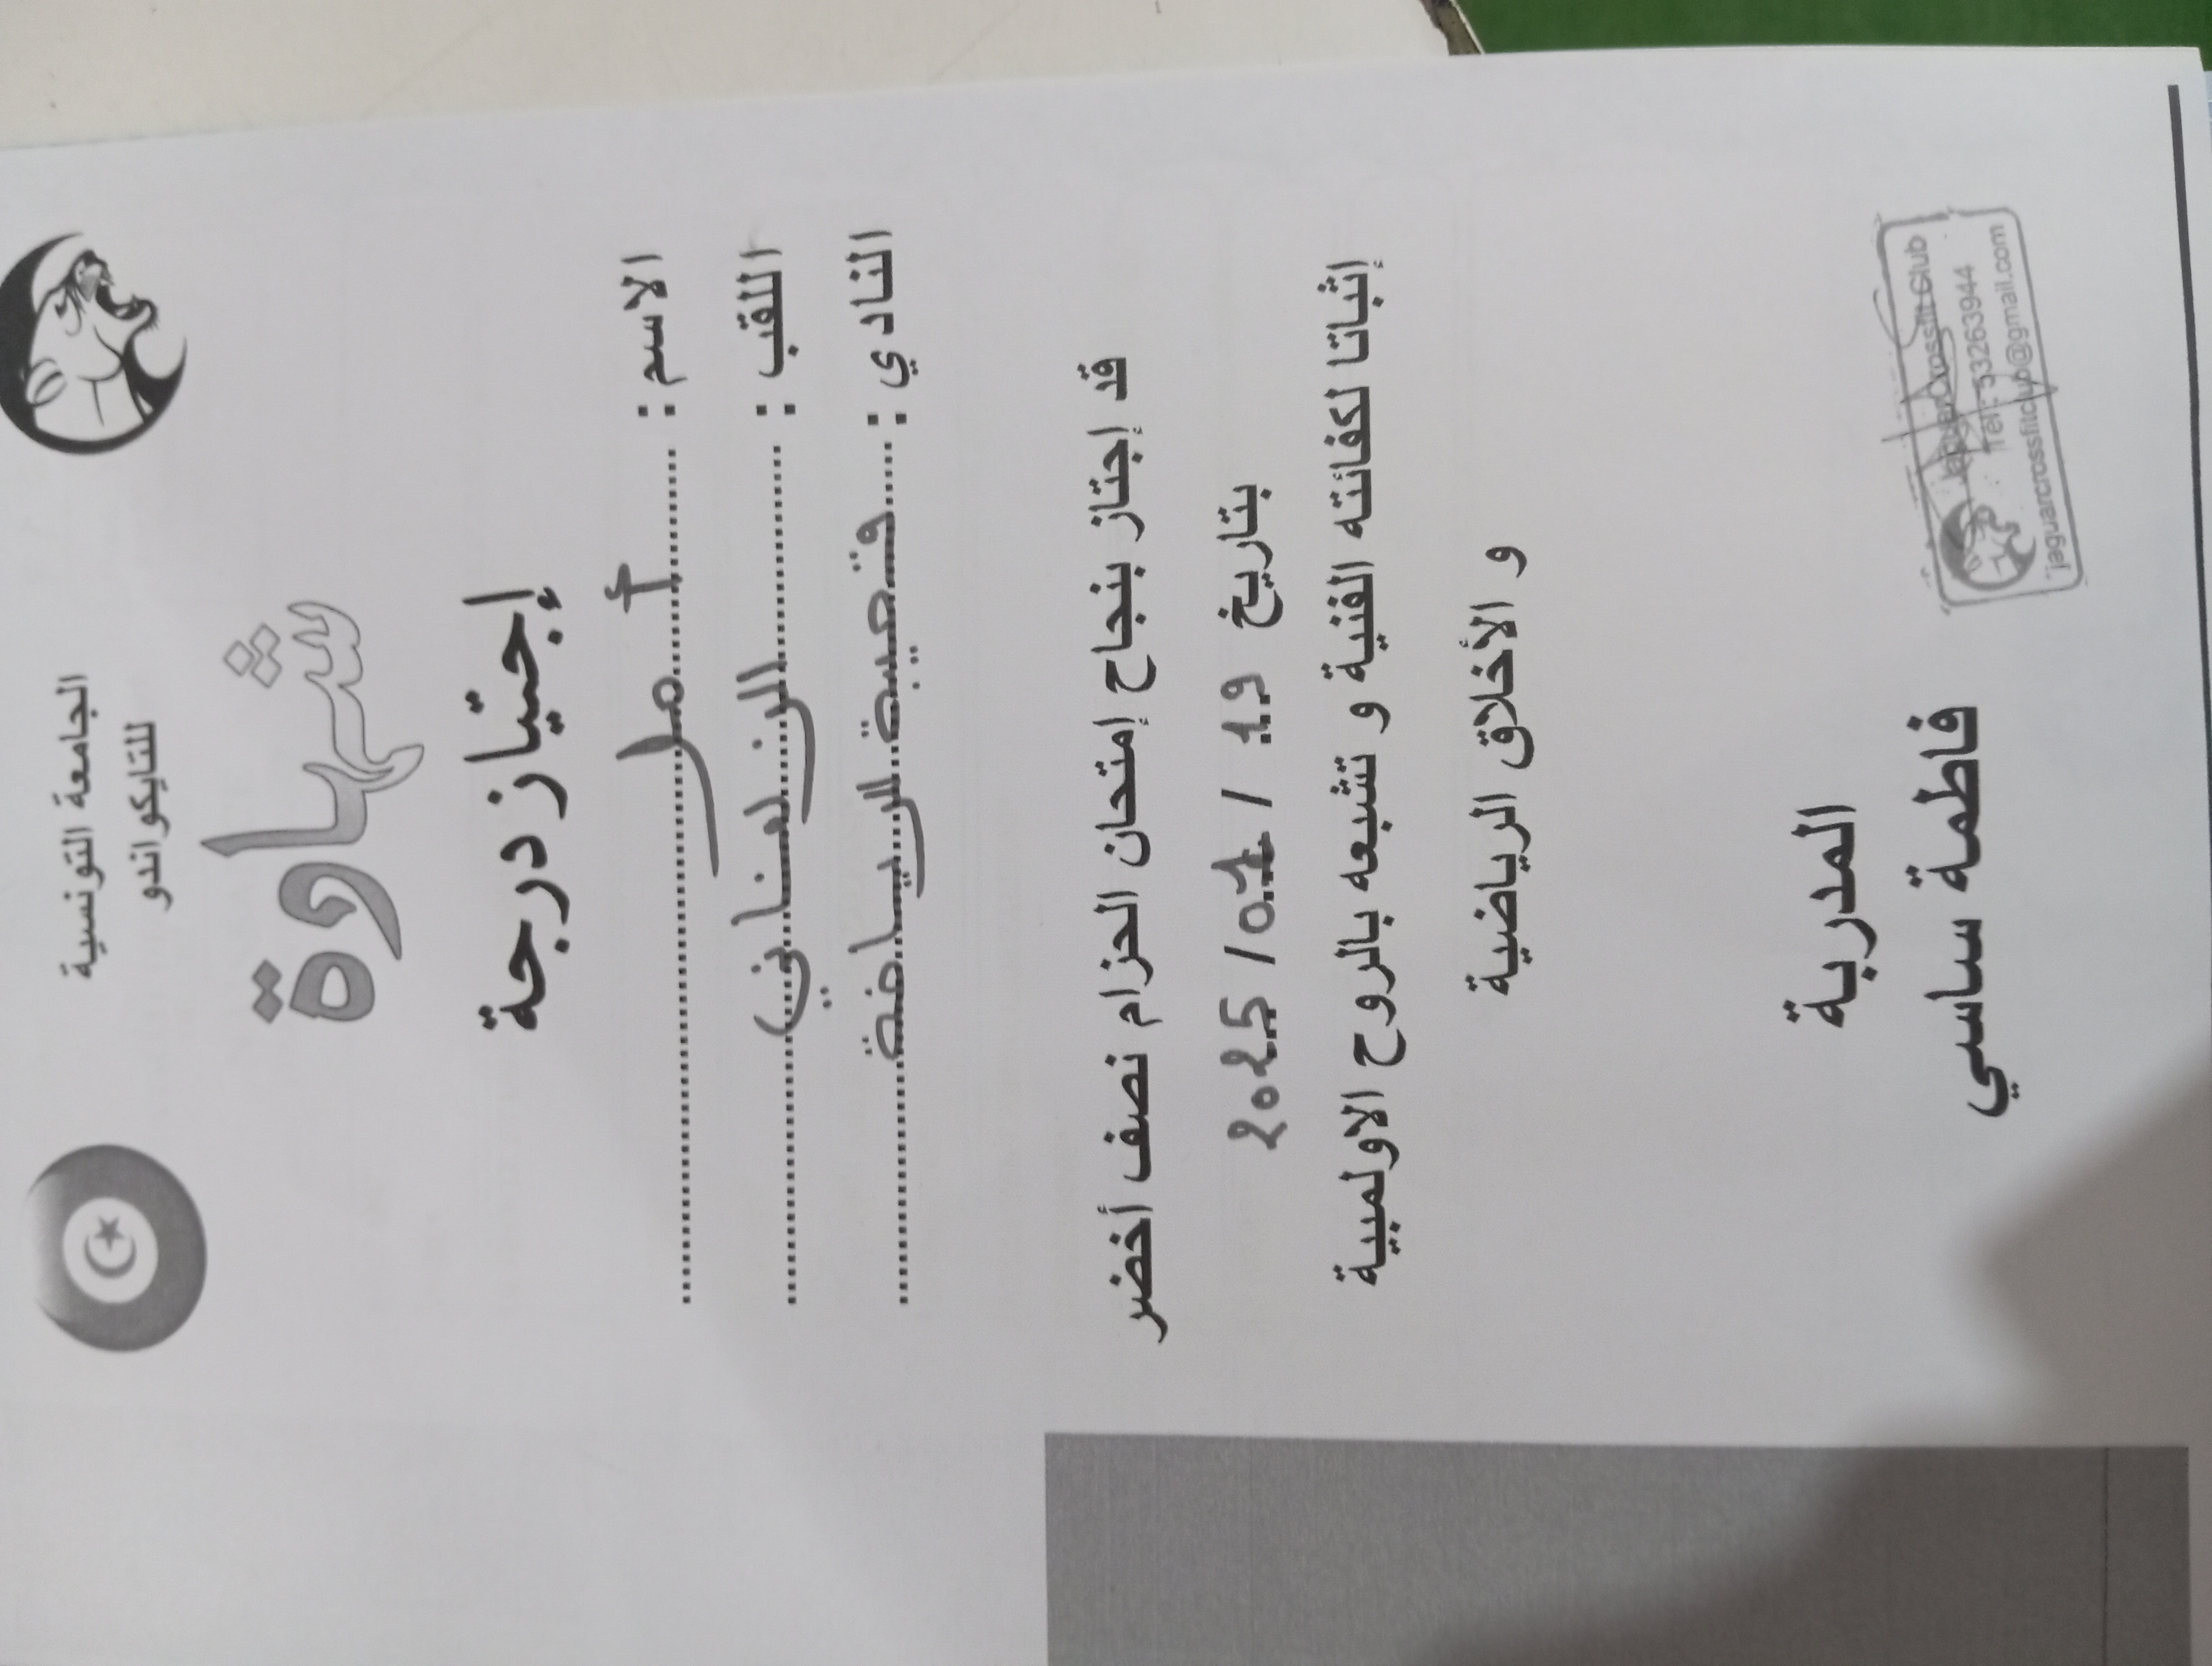 الجامعة التونسية
للتايكواندو
شهادة
إجتياز درجة
الاسم : أمل
اللقب : الزنعناني
النادي : قصيبة الرياضة
قد إجتاز بنجاح إمتحان الحزام نصف أخضر
بتاريخ 19 / 01 / 2025
إثباتا لكفائته الفنية و تشبعه بالروح الاولمبية
و الأخلاق الرياضية
المدربة
فاطمة ساسي
Jaguar Crossfit Club
Tel : 53263944
jaguarcrossfitclub@gmail.com